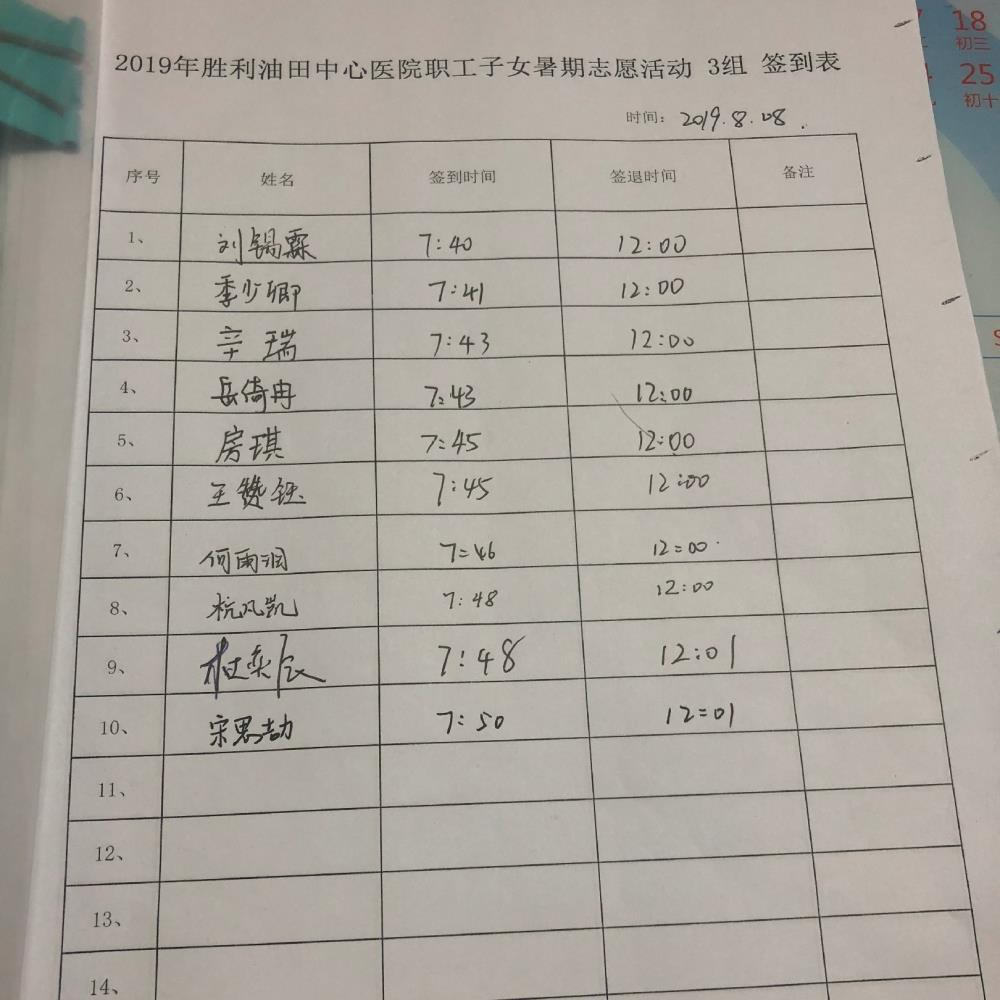 2019年胜利油田中心医院职工子女暑期志愿活动 3组 签到表
时间: 2019.8.08.
序号 姓名 签到时间 签退时间 备注
1、 刘锡霖 7:40 12:00
2、 季少卿 7:41 12:00
3、 辛瑞 7:43 12:00
4、 岳倚冉 7:43 12:00
5、 房琪 7:45 12:00
6、 王赞钰 7:45 12:00
7、 何雨润 7:46 12:00
8、 杭风凯 7:48 12:00
9、 7:48 12:01
10、 宋思劼 7:50 12:01
11、
12、
13、
14、
18
初三
25
初十